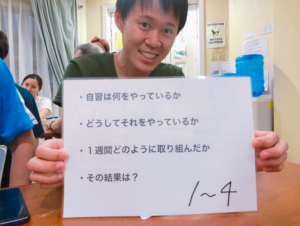 ・自習は何をやっているか
・どうしてそれをやっているか
・1週間どのように取り組んだか
・その結果は？
1〜4